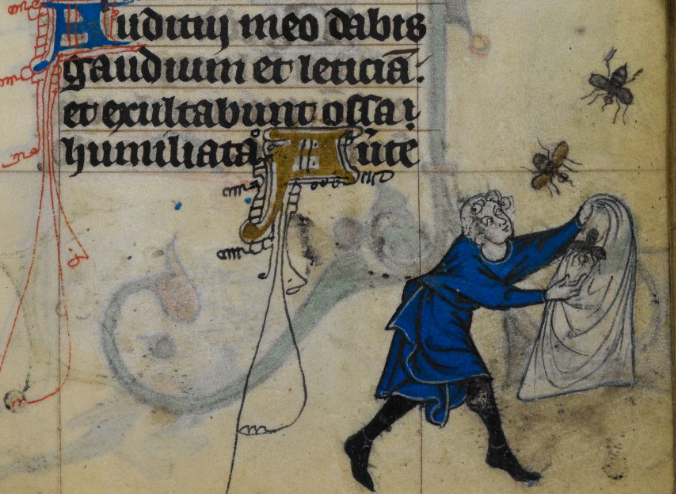 Auditui meo dabis
gaudium et leticiā.
et exultabunt ossa
humiliata A